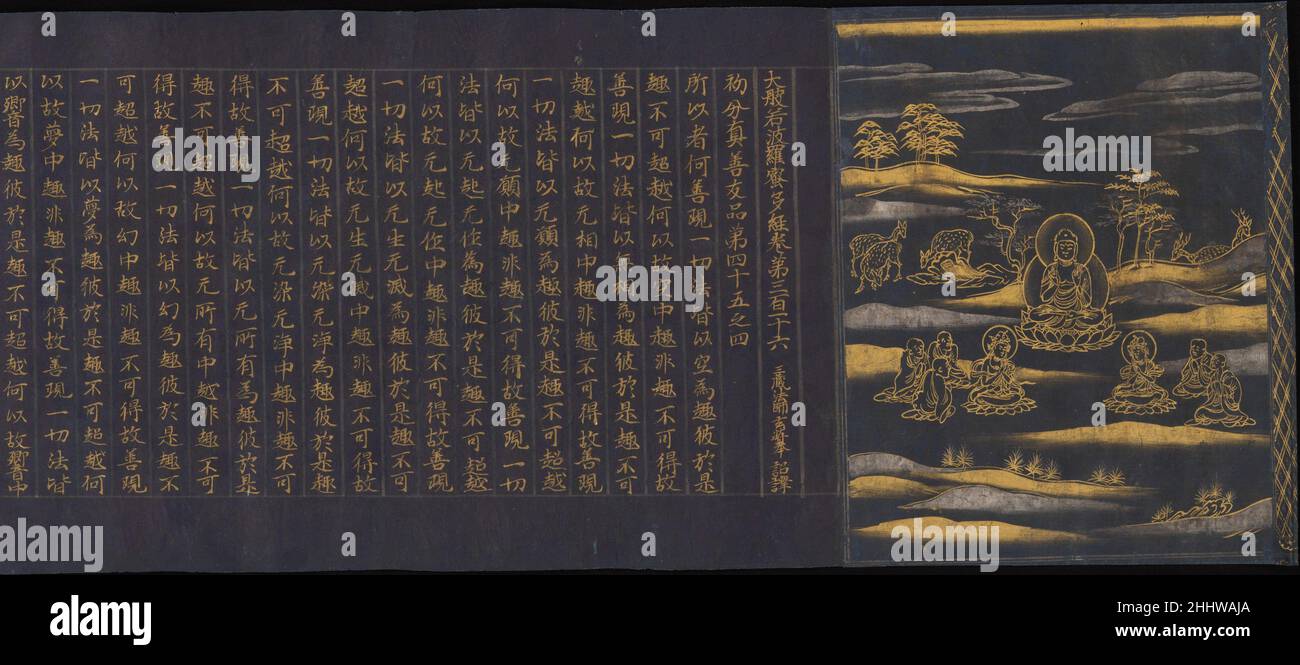 大般若波羅蜜多經卷第三百十六 三藏法師玄奘奉 詔譯
初分真善友品第四十五之四
所以者何善現一切法皆以空為趣彼於是
趣不可超越何以故空中趣非趣不可得故
善現一切法皆以无相為趣彼於是趣不可
超越何以故无相中趣非趣不可得故善現
一切法皆以无願為趣彼於是趣不可超越
何以故无願中趣非趣不可得故善現一切
法皆以无起无作為趣彼於是趣不可超越
何以故无起无作中趣非趣不可得故善現
一切法皆以无生无滅為趣彼於是趣不可
超越何以故无生无滅中趣非趣不可得故
善現一切法皆以无染无淨為趣彼於是趣
不可超越何以故无染无淨中趣非趣不可
得故善現一切法皆以无所有為趣彼於是
趣不可超越何以故无所有中趣非趣不可
得故善現一切法皆以幻為趣彼於是趣不
可超越何以故幻中趣非趣不可得故善現
一切法皆以夢為趣彼於是趣不可超越何
以故夢中趣非趣不可得故善現一切法皆
以響為趣彼於是趣不可超越何以故響中
alamy
Image ID: 2HHWAJA
www.alamy.com